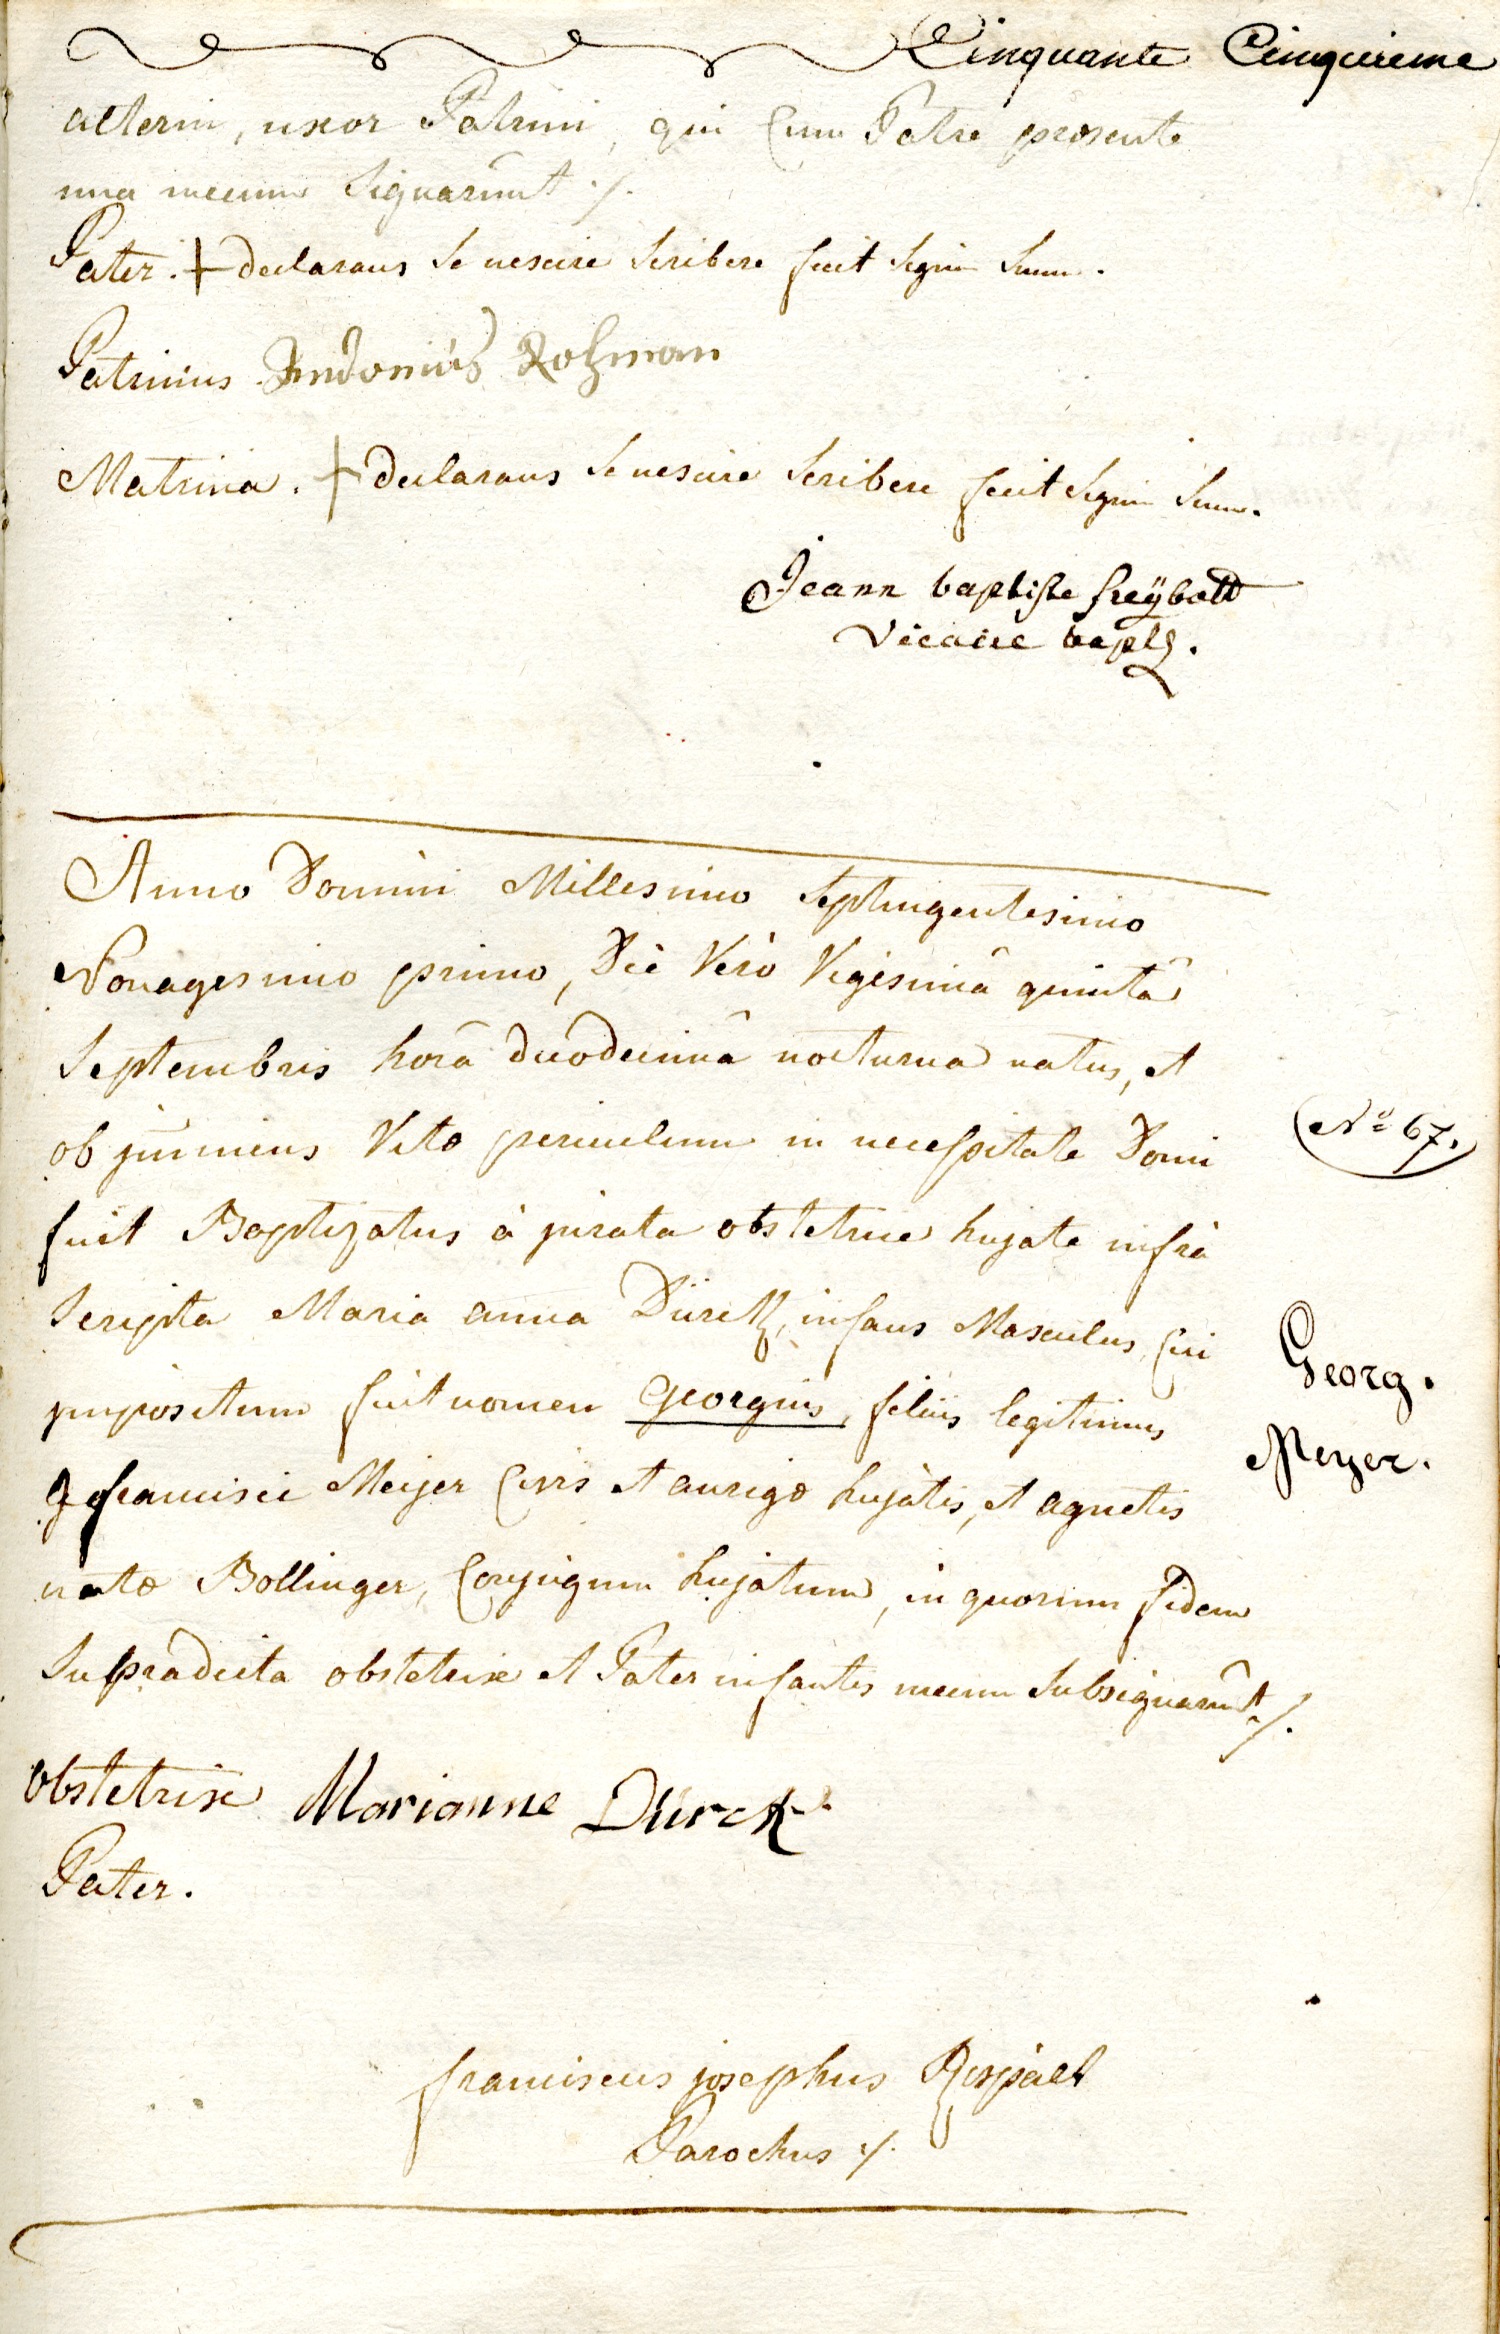 Cinquante Cinquieme
alterin, uxor Patrini, qui Cum Patre præsente
una mecum Signarunt ./.
Pater. + declarans se nescire scribere fecit Signũ Suum.
Patrinus Andonius Rohman
Matrina. + declarans se nescire Scribere fecit Signũ Suum.
Jeann baptiste freÿbott
Vicaire bapt.
Anno Domini Millesimo Septingentesimo
Nonagesimo primo, Diè Verò Vigesimâ quintâ
Septembris horâ duodecimâ nocturna natus, et
ob jminens Vitæ periculum in necessitate Domi
fuit Baptizatus à jurata obstetrice hujate infrà
Scripta Maria anna Dürck, infans Masculus, Cui
jmpositum fuit nomen Georgius, filius legitimus
francisci Meijer Civis et aurigæ hujatis, et agnetis
natæ Bollinger, Conjugum hujatum, in quorum fidem
Supradicta obstetrix et Pater infantis mecum Subsignarũt ./.
No 67.
Georg.
Meyer.
Obstetrix Marianne Dürck
Pater.
franciscus josephus
Parochus ./.